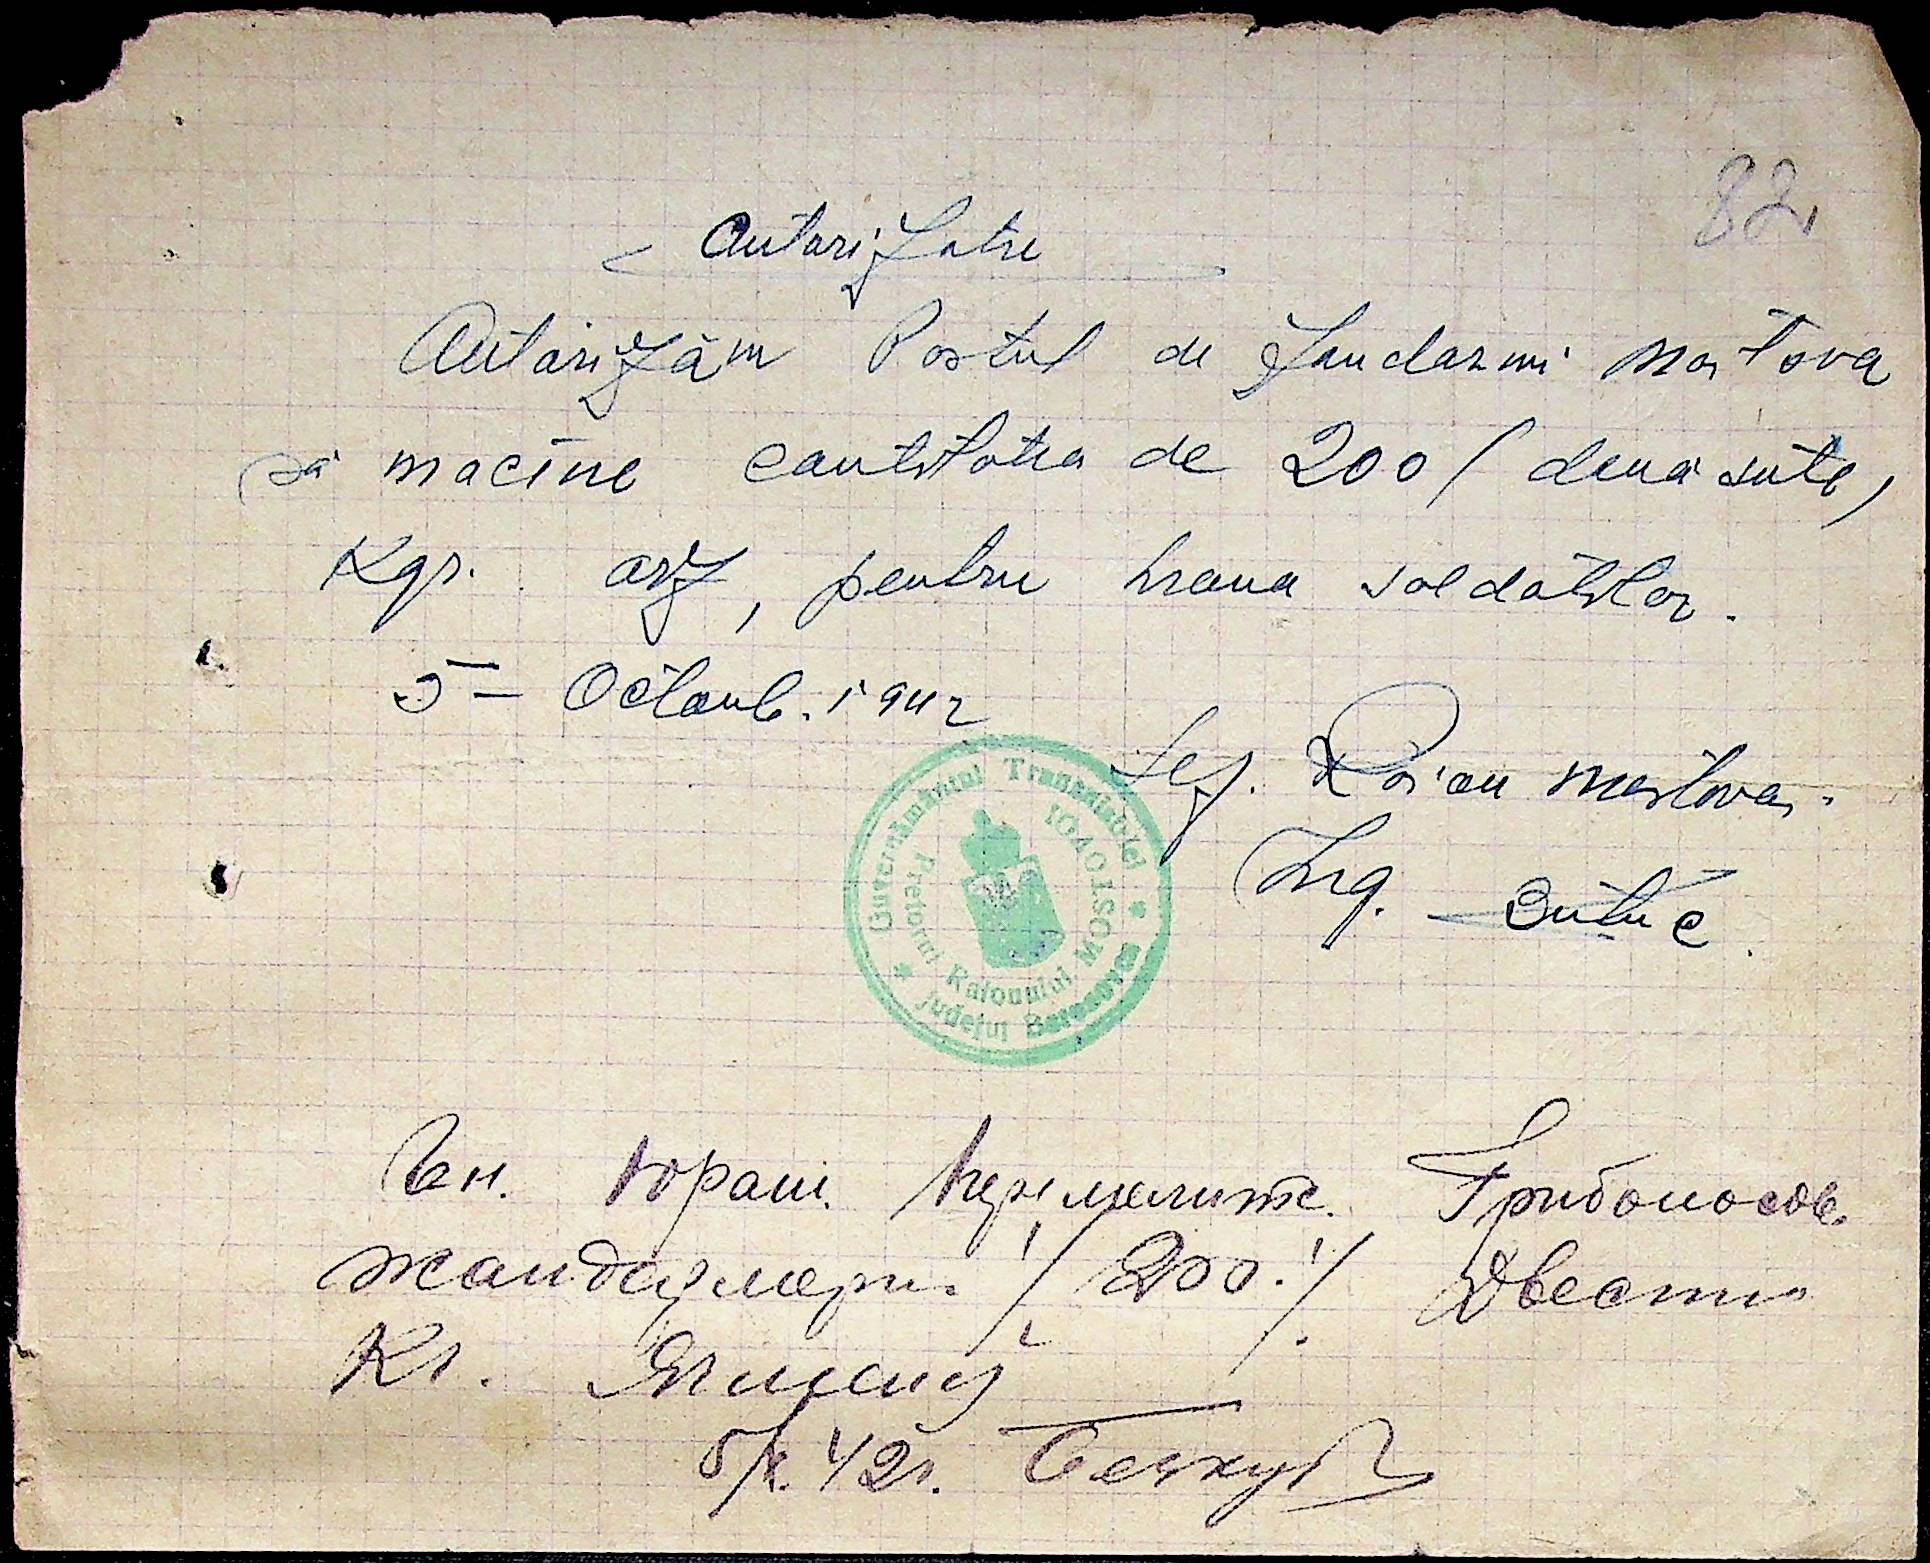 82,
Autorizatie
Autorizăm Postul de Jandarmi Mostova
să macine cantitatea de 200 (două sute)
Kgr. orz, pentru hrana soldatilor.
5 - Octomb. 1942
Șef. Raion Mostova.
Ing.
Guvernământul Transnistriei
Pretorul Raionului MOSTOVOI
Județul Berezovca
Юраш. Перемелите.
жандармери. ·/ 200. ·/ Двести
Кг. Ячменя
5/X. 42г.